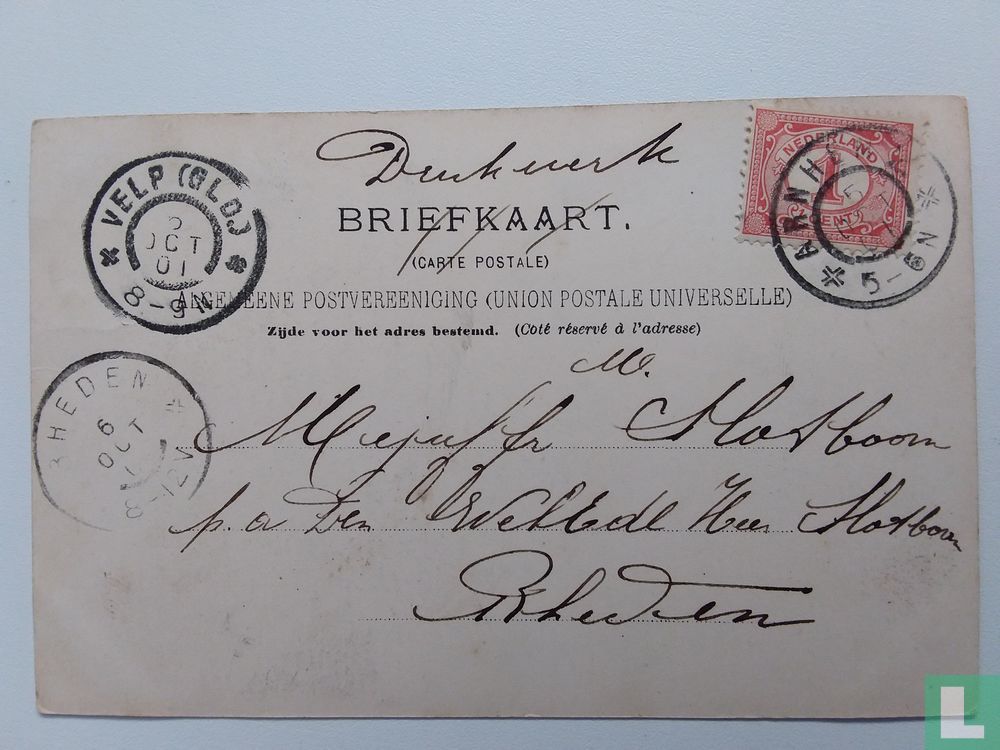 Drukwerk
BRIEFKAART.
(CARTE POSTALE)
ALGEMEENE POSTVEREENIGING (UNION POSTALE UNIVERSELLE)
Zijde voor het adres bestemd. (Coté réservé à l'adresse)
NEDERLAND
1
CENT
ARNH
5-6N
VELP (GLD.)
5
OCT
01
8-9N
RHEDEN
6
OCT
8-12V
M.
Mejuffr Slotboom
p. a Den WelEdl Heer Slotboom
Rheden
L